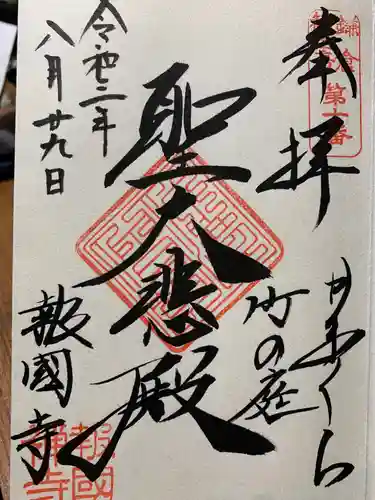 第十番
奉拝
かまくら
竹の庭
聖大悲殿
令和二年
八月廿九日
報國寺
報國
禅寺